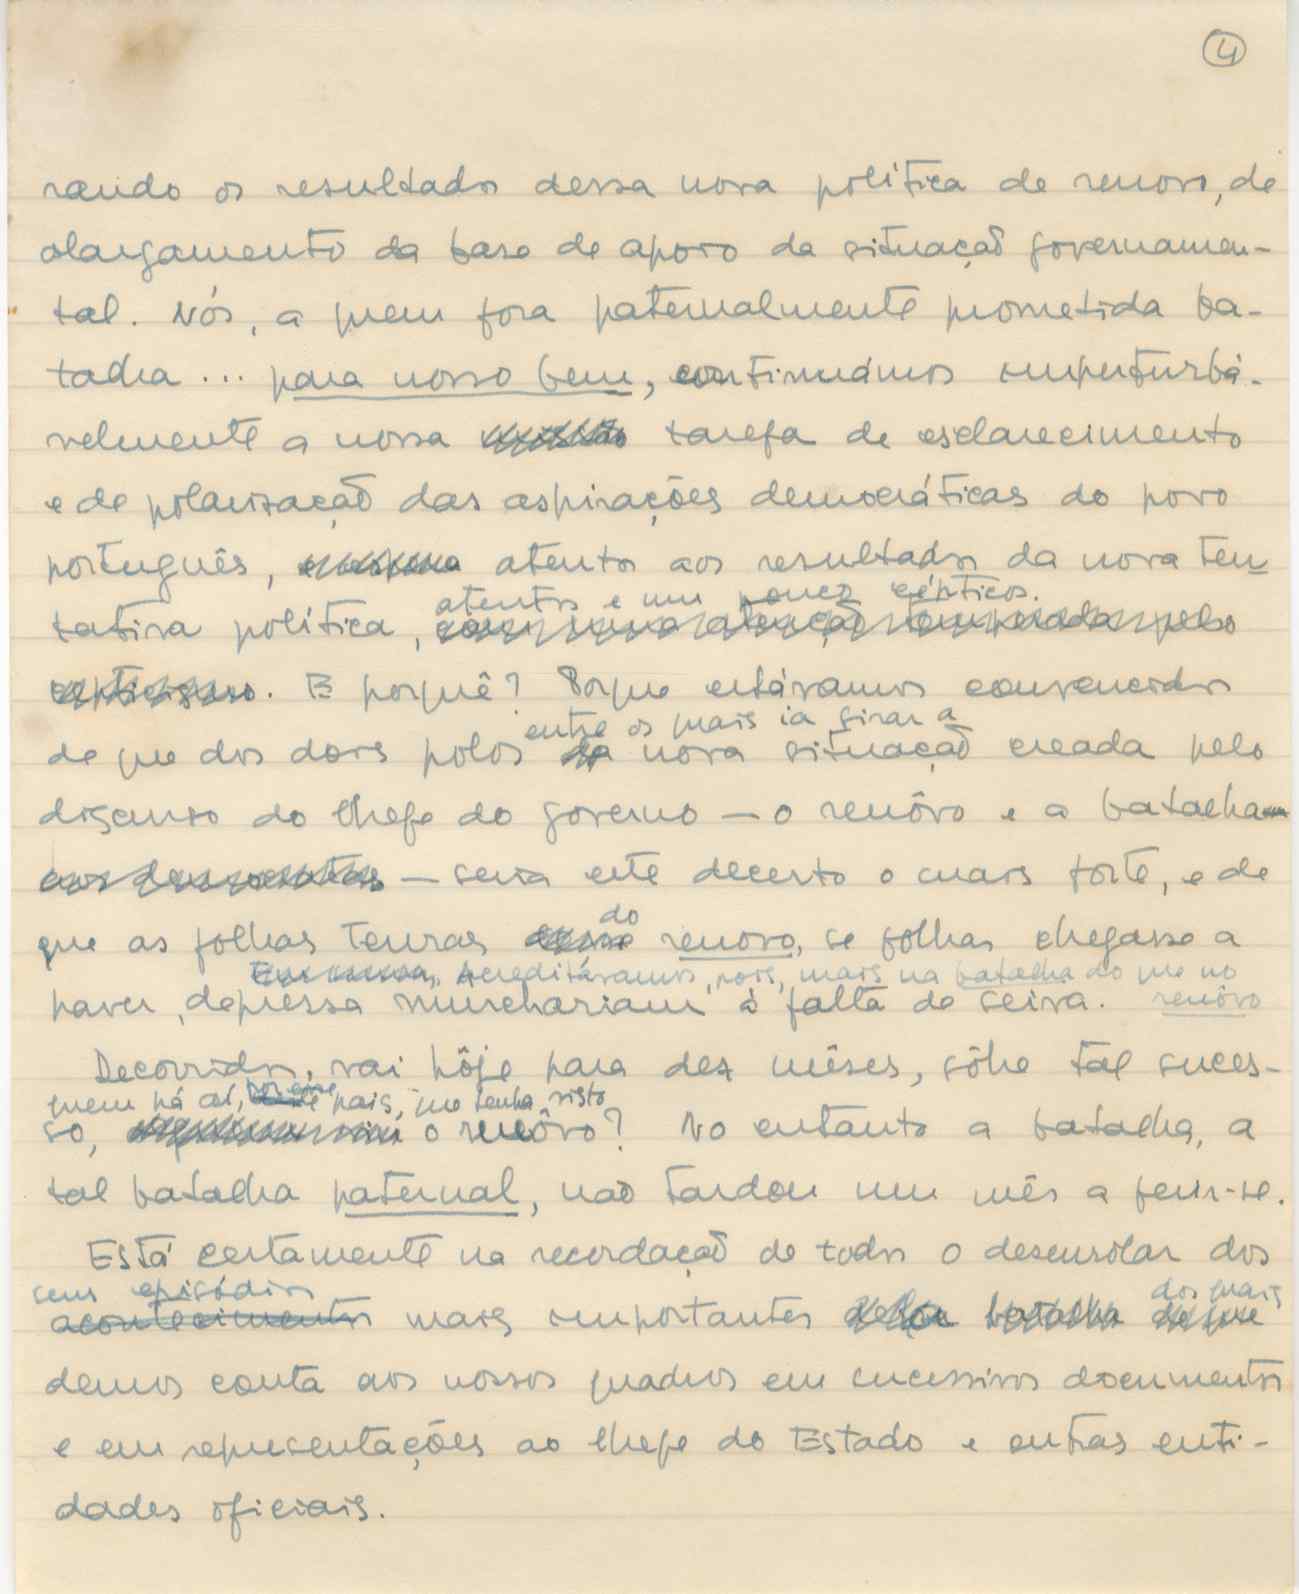 4
rando os resultados dessa nova política de renovo, de
alargamento da base de apoio da situação governamen-
tal. Nós, a quem fora paternalmente prometida ba-
talha... para nosso bem, continuámos imperturbà-
velmente a nossa tarefa de esclarecimento
e de polarização das aspirações democráticas do povo
português, atentos aos resultados da nova ten-
atentos e um pouco cépticos.
tativa política, com uma atenção temperada pelo
septicismo. E porquê? Porque estávamos convencidos
entre os quais ia girar a
de que dos dois polos da nova situação creada pelo
discurso do Chefe do governo — o renôvo e a batalha
aos democratas — seria este decerto o mais forte, e de
do
que as folhas tenras desse renovo, se folhas chegasse a
Em suma, Acreditávamos, pois, mais na batalha do que no
haver, depressa murchariam à falta de seiva. renôvo
Decorridos, vai hôje para dez mêses, sôbre tal suces-
quem há aí, pois, que tenha visto
so, o renôvo? No entanto a batalha, a
tal batalha paternal, não tardou um mês a ferir-se.
Está certamente na recordação de todos o desenrolar dos
seus episódios
dos quais
acontecimentos mais importantes desta batalha de que
demos conta aos nossos quadros em sucessivos documentos
e em representações ao Chefe do Estado e outras enti-
dades oficiais.